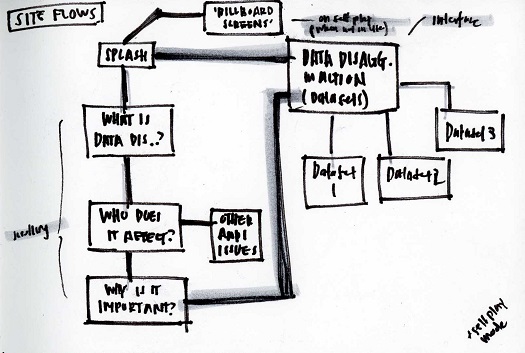 SITE FLOWS
'BILLBOARD
SCREENS'
on self play
(when not in use)
interface
SPLASH
DATA DISAGG.
IN ACTION
(DATASETS)
WHAT IS
DATA DIS..?
Dataset
1
Dataset 2
Dataset 3
WHO DOES
IT AFFECT?
OTHER
AAPI
ISSUES
WHY IS IT
IMPORTANT?
self play
mode